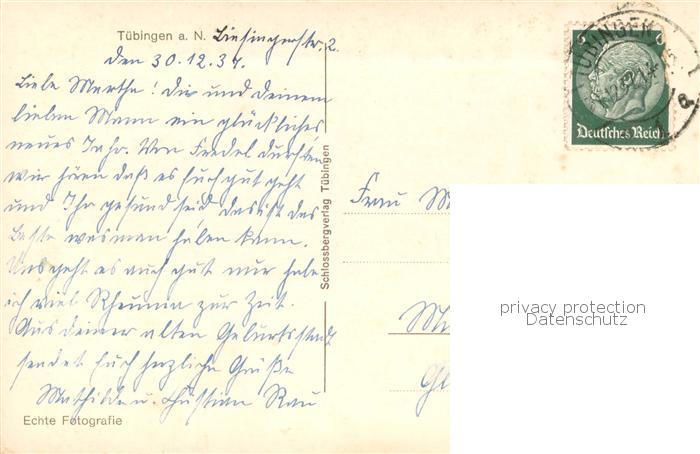 Tübingen a. N. Liesingerstr. 2.
den 30.12.37.
Liebe Marthe! Dir und deinem
lieben Mann ein glückliches
neues Jahr. Von Fredel durften
wir hören daß es Euch gut geht
und Ihr gesund seid das ist das
Beste was man haben kann.
Uns geht es auch gut nur habe
ich viel Rheuma zur Zeit.
Aus deiner alten Geburtsstadt
sendet Euch herzliche Grüße
Mathilde u. Christian Rau
Echte Fotografie
Schlossbergverlag Tübingen
Frau
TÜBINGEN
6 6
Deutsches Reich
privacy protection
Datenschutz